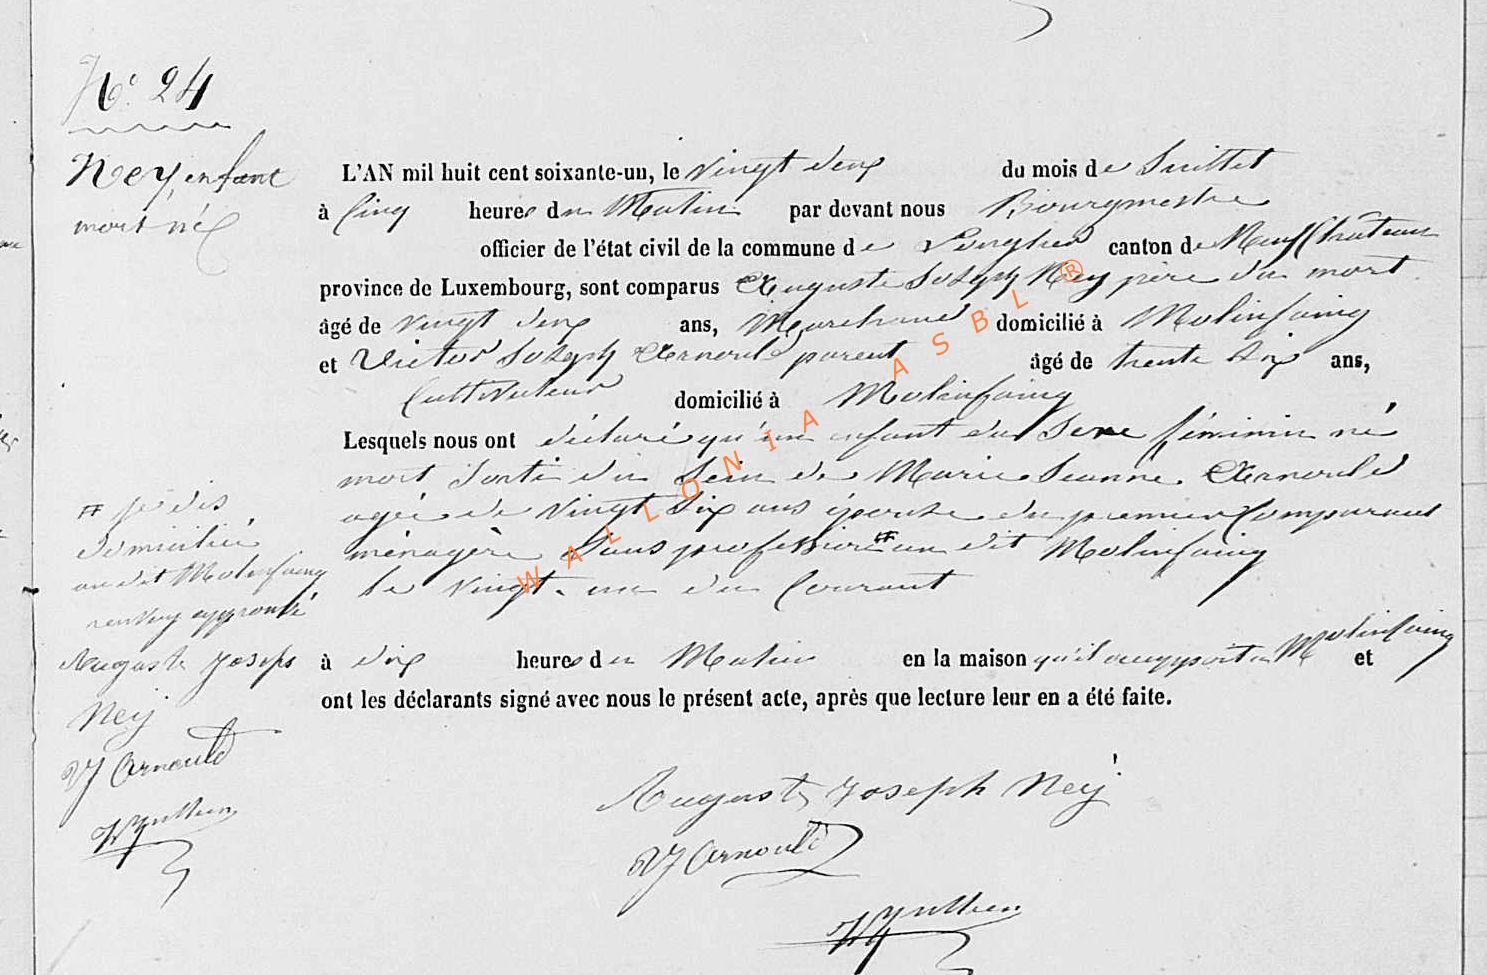 N° 24
Ney, enfant
mort né
L'AN mil huit cent soixante-un, le vingt deux du mois de Juillet
à Cinq heures du Matin par devant nous Bourgmestre
officier de l'état civil de la commune de Longlier canton de Neufchâteau
province de Luxembourg, sont comparus Auguste Joseph Ney père du mort
âgé de vingt deux ans, Marchand domicilié à Molinfaing
et Victor Joseph Arnould parent âgé de trente six ans,
Cultivateur domicilié à Molinfaing
Lesquels nous ont déclaré qu'un enfant du Sexe féminin né
mort sorti du Sein de Marie Jeanne Arnould
agée de Vingt Six ans épouse du premier Comparant
ménagère Sans profession ## au dit Molinfaing
le vingt-un du Courant
à dix heures du Matin en la maison qu'il occupait à Molinfaing et
ont les déclarants signé avec nous le présent acte, après que lecture leur en a été faite.
## je dis
domiciliée
au dit Molinfaing
renvoy approuvé
Auguste Joseph
Ney
VJ Arnould
Auguste Joseph Ney
VJ Arnould
WALLONIA ASBL ®